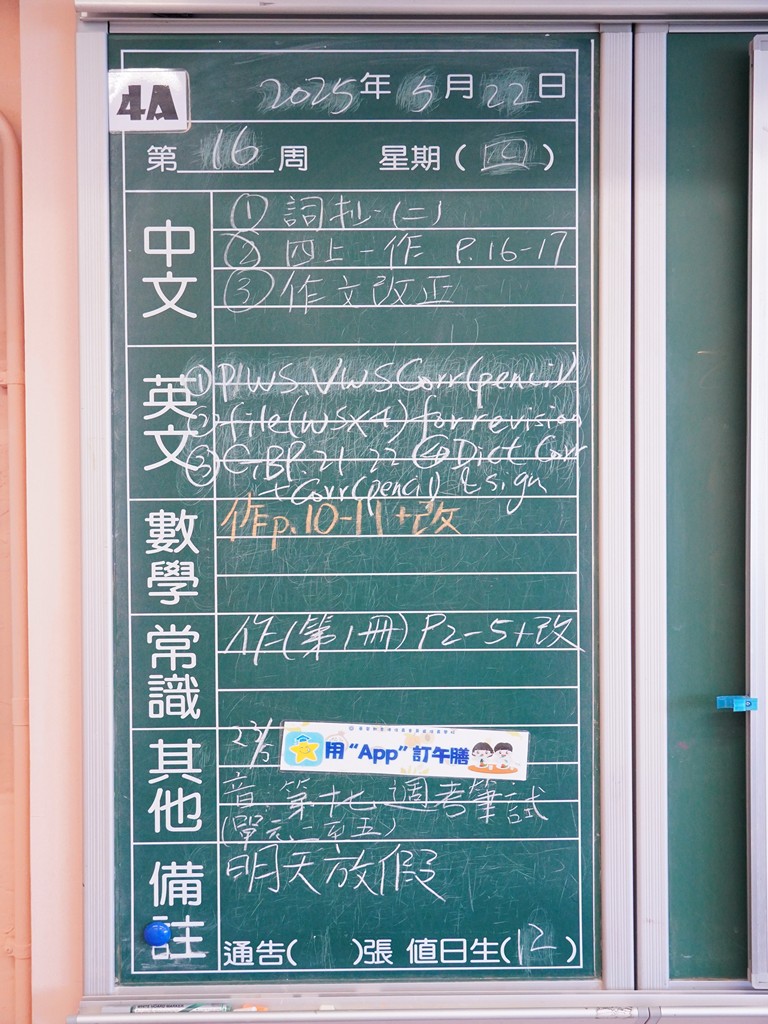 4A
2025年5月22日
第16周 星期(四)
中文
① 詞抄(二)
② 四上一作 P.16-17
③ 作文改正
英文
① P/WS.VWS Corr(pencil)
② file(WSX4) for revision
③ G.BP.21-22 ④ Dict Corr
+Corr(pencil) & sign
數學
作p.10-11+改
常識
作(第1冊)P2-5+改
其他
22/5
用“App”訂午膳
音:第十七週考筆試
(單元二至五)
備註
明天放假
通告( )張 值日生(12)